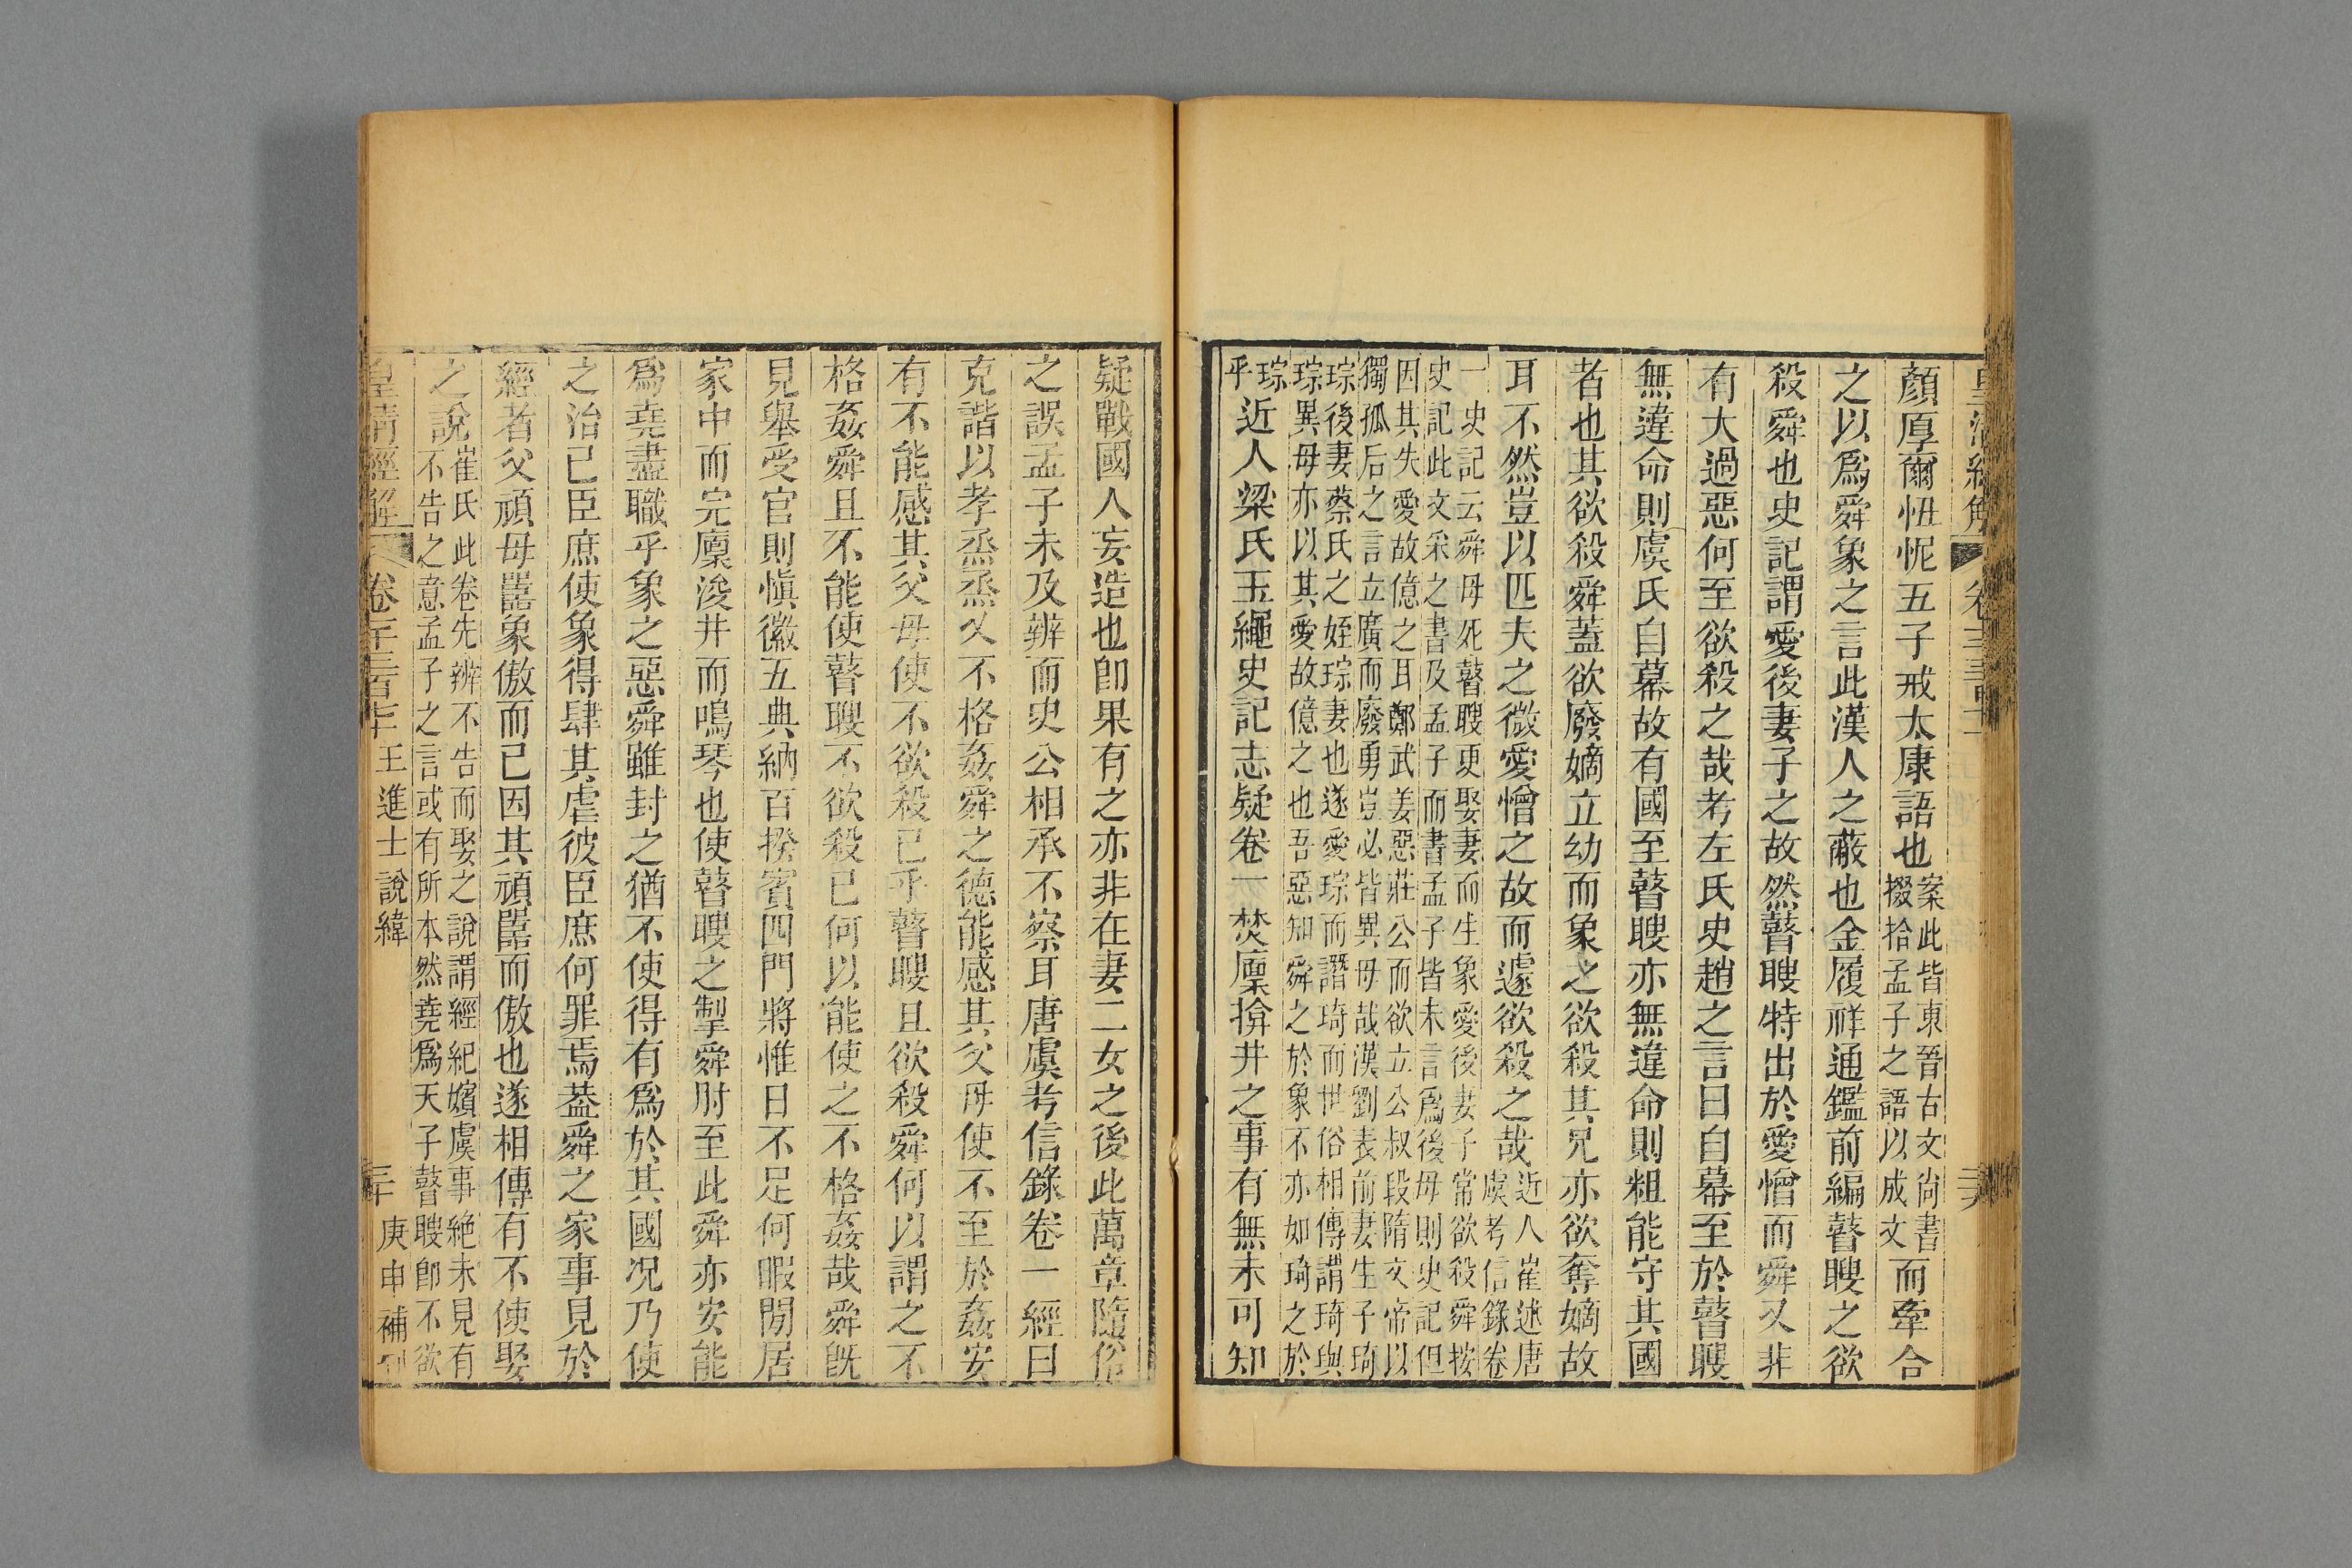 皇清經解 卷
顏厚爾忸怩五子戒太康語也案此皆東晉古文尚書掇拾孟子之語以成文而牽合
之以爲舜象之言此漢人之蔽也金履祥通鑑前編瞽瞍之欲
殺舜也史記謂愛後妻子之故然瞽瞍特出於愛憎而舜又非
有大過惡何至欲殺之哉考左氏史趙之言曰自幕至於瞽瞍
無違命則虞氏自幕故有國至瞽瞍亦無違命則粗能守其國
者也其欲殺舜蓋欲廢嫡立幼而象之欲殺其兄亦欲奪嫡故
耳不然豈以匹夫之微愛憎之故而遽欲殺之哉近人崔述唐虞考信錄卷
一史記云舜母死瞽瞍更娶妻而生象愛後妻子常欲殺舜按
史記此文采之書及孟子而書孟子皆未言爲後母則史記但
因其失愛故億之耳鄭武姜惡莊公而欲立公叔段隋文帝以
獨孤后之言立廣而廢勇豈必皆異母哉漢劉表前妻生子琦
琮後妻蔡氏之姪琮妻也遂愛琮而譖琦而世俗相傳謂琦與
琮異母亦以其愛故億之也吾惡知舜之於象不亦如琦之於
琮乎近人梁氏玉繩史記志疑卷一焚廩揜井之事有無未可知
疑戰國人妄造也卽果有之亦非在妻二女之後此萬章隨俗
之誤孟子未及辨而史公相承不察耳唐虞考信錄卷一經曰
克諧以孝烝烝乂不格姦舜之德能感其父母使不至於姦安
有不能感其父母使不欲殺已乎瞽瞍且欲殺舜何以謂之不
格姦舜且不能使瞽瞍不欲殺已何以能使之不格姦哉舜旣
見舉受官則愼徽五典納百揆賓四門將惟日不足何暇閒居
家中而完廩浚井而鳴琴也使瞽瞍之掣舜肘至此舜亦安能
爲堯盡職乎象之惡舜雖封之猶不使得有爲於其國況乃使
之治已臣庶使象得肆其虐彼臣庶何罪焉葢舜之家事見於
經者父頑母嚚象傲而已因其頑嚚而傲也遂相傳有不使娶
之說崔氏此卷先辨不告而娶之說謂經紀嬪虞事絶未見有
不告之意孟子之言或有所本然堯爲天子瞽瞍卽不欲
皇清經解 卷 王進士說緯 庚申補刊